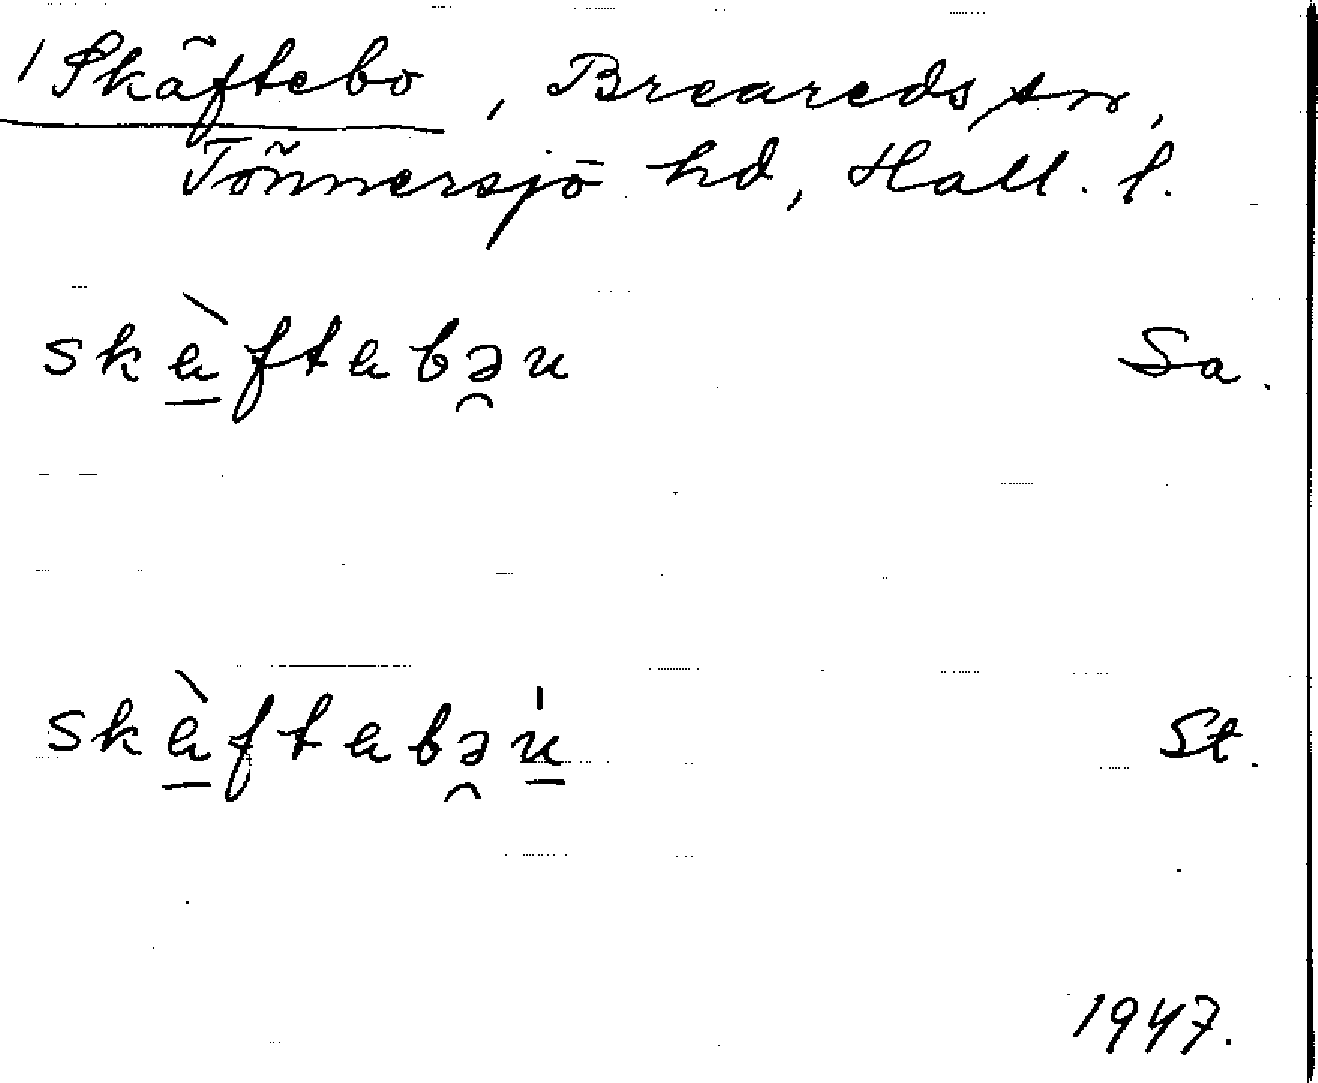 / Skäftebo, Breareds sn,
Tönnersjö hd, Hall. l.
skä̀ftabəu Sa.
skä̀ftabəú St.
1947.